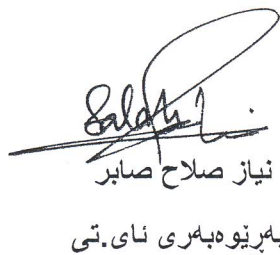 Salah
نياز صلاح صابر
بەڕێوەبەری ئای.تی